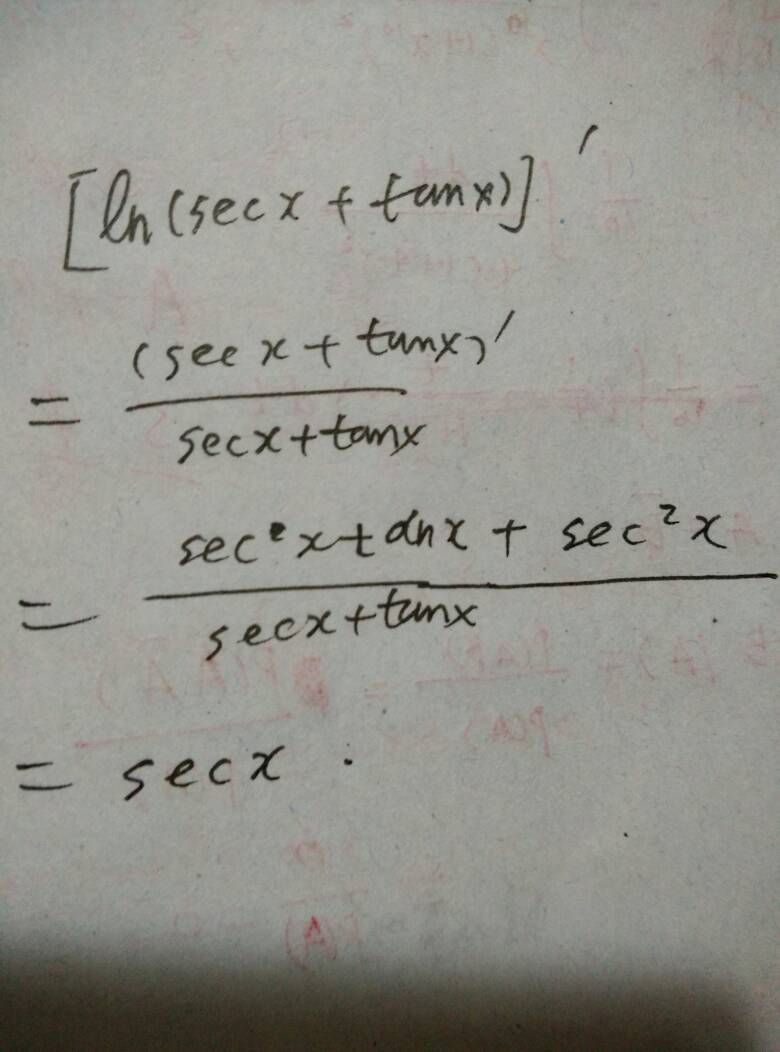 [ln(secx + tanx)]′
= (secx + tanx)′
secx+tanx
= sec x tanx + sec²x
secx+tanx
= secx .